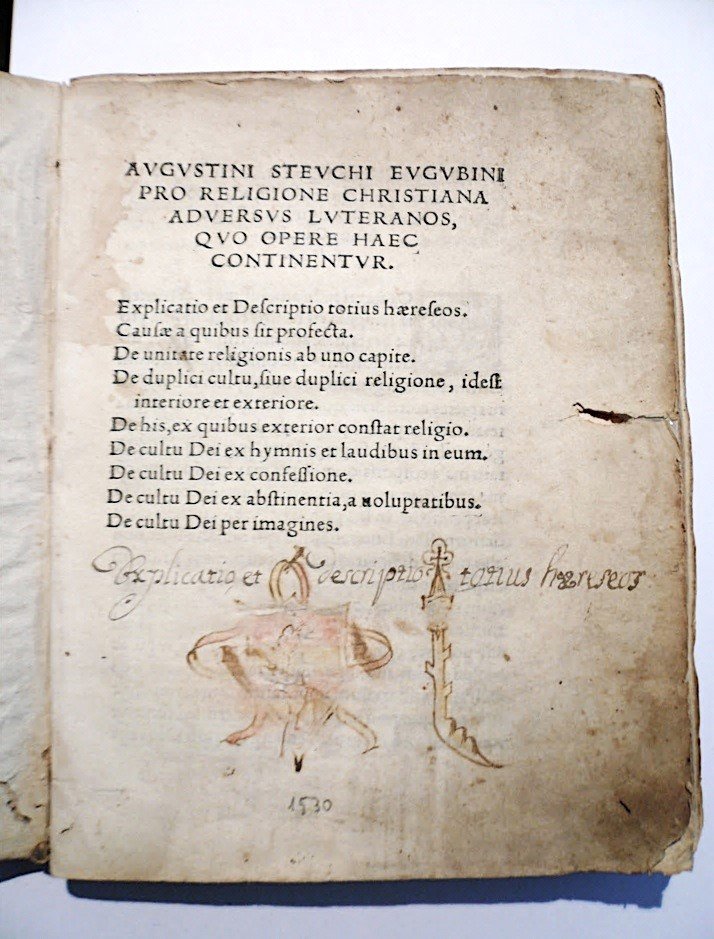 AVGVSTINI STEVCHI EVGVBINI
PRO RELIGIONE CHRISTIANA
ADVERSVS LVTERANOS,
QVO OPERE HAEC
CONTINENTVR.
Explicatio et Deſcriptio totius hæreſeos.
Cauſæ a quibus ſit profecta.
De unitate religionis ab uno capite.
De duplici cultu, ſiue duplici religione, ideſt
interiore et exteriore.
De his, ex quibus exterior conſtat religio.
De cultu Dei ex hymnis et laudibus in eum.
De cultu Dei ex confeſſione.
De cultu Dei ex abſtinentia, a uoluptatibus.
De cultu Dei per imagines.
Explicatio, et descriptio totius hæreseos
1530